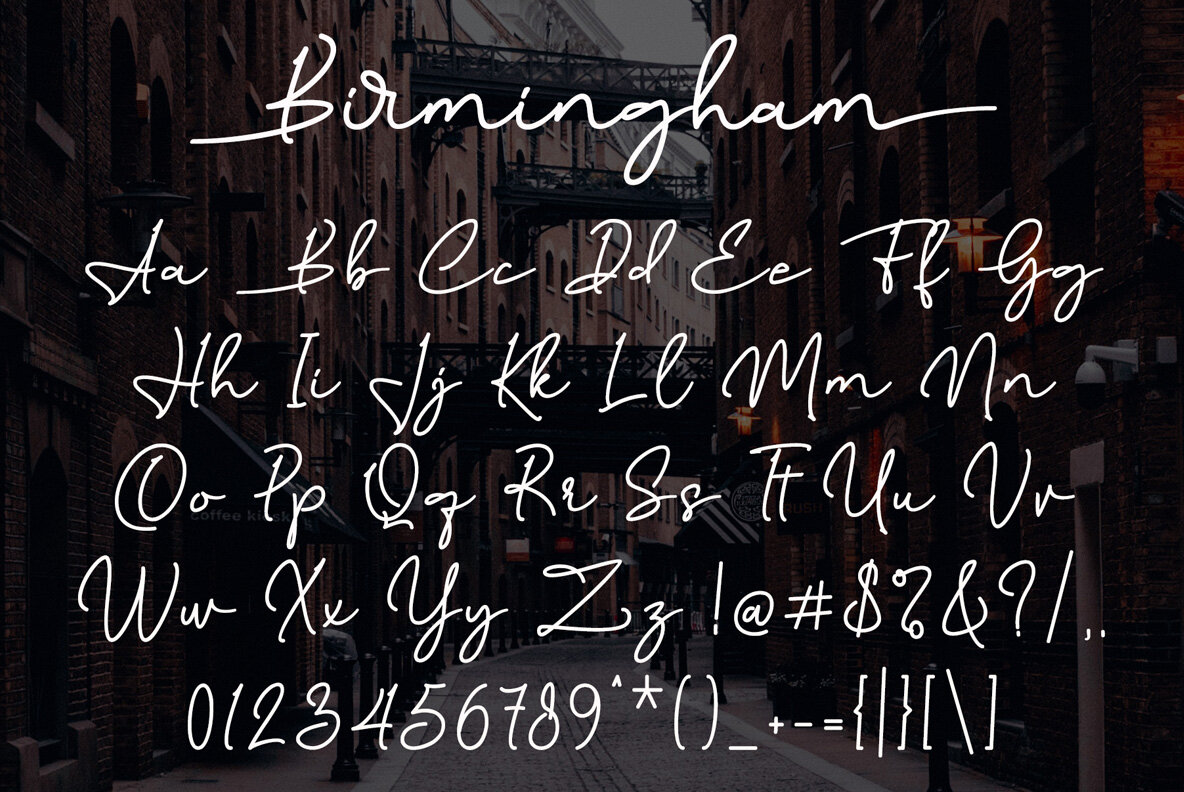 Birmingham
Aa Bb Cc Dd Ee Ff Gg
Hh Ii Jj Kk Ll Mm Nn
Oo Pp Qq Rr Ss Tt Uu Vv
coffee kiosk
RUSH
Ww Xx Yy Zz !@#$%&?/,.
0123456789^*()_+-={|}[\]